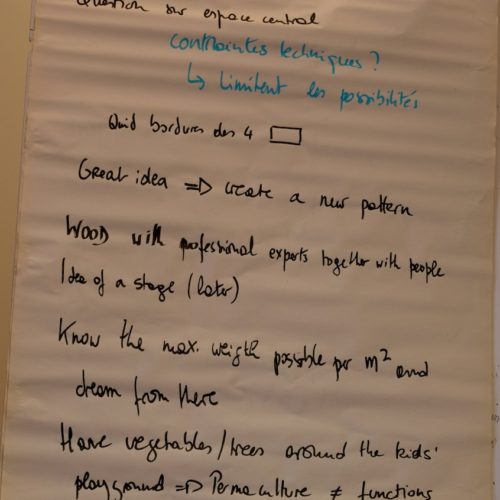 Question sur espace central
contraintes techniques ?
↳ Limitent les possibilités
Quid bordures des 4 ▭
Great idea => create a new pattern
WOOD with professional experts together with people
Idea of a stage (later)
Know the max. weigth possible per m² and
dream from there
Have vegetables/trees around the kids'
playground => Permaculture ≠ functions